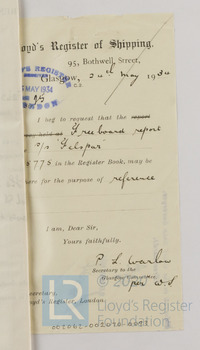 loyd's Register of Shipping.
95, Bothwell Street,
Glasgow, 24th May 1934
LLOYD'S REGISTER
MAY 1934
LONDON
I beg to request that the report
Freeboard report
s/s "Kelspar"
5775 in the Register Book, may be
here for the purpose of reference
I am, Dear Sir,
Yours faithfully,
P. L. Warlow
Secretary to the
per W.S.
Secretary,
loyd's Register, London.
© 20
LR
Lloyd's Register
Foundation